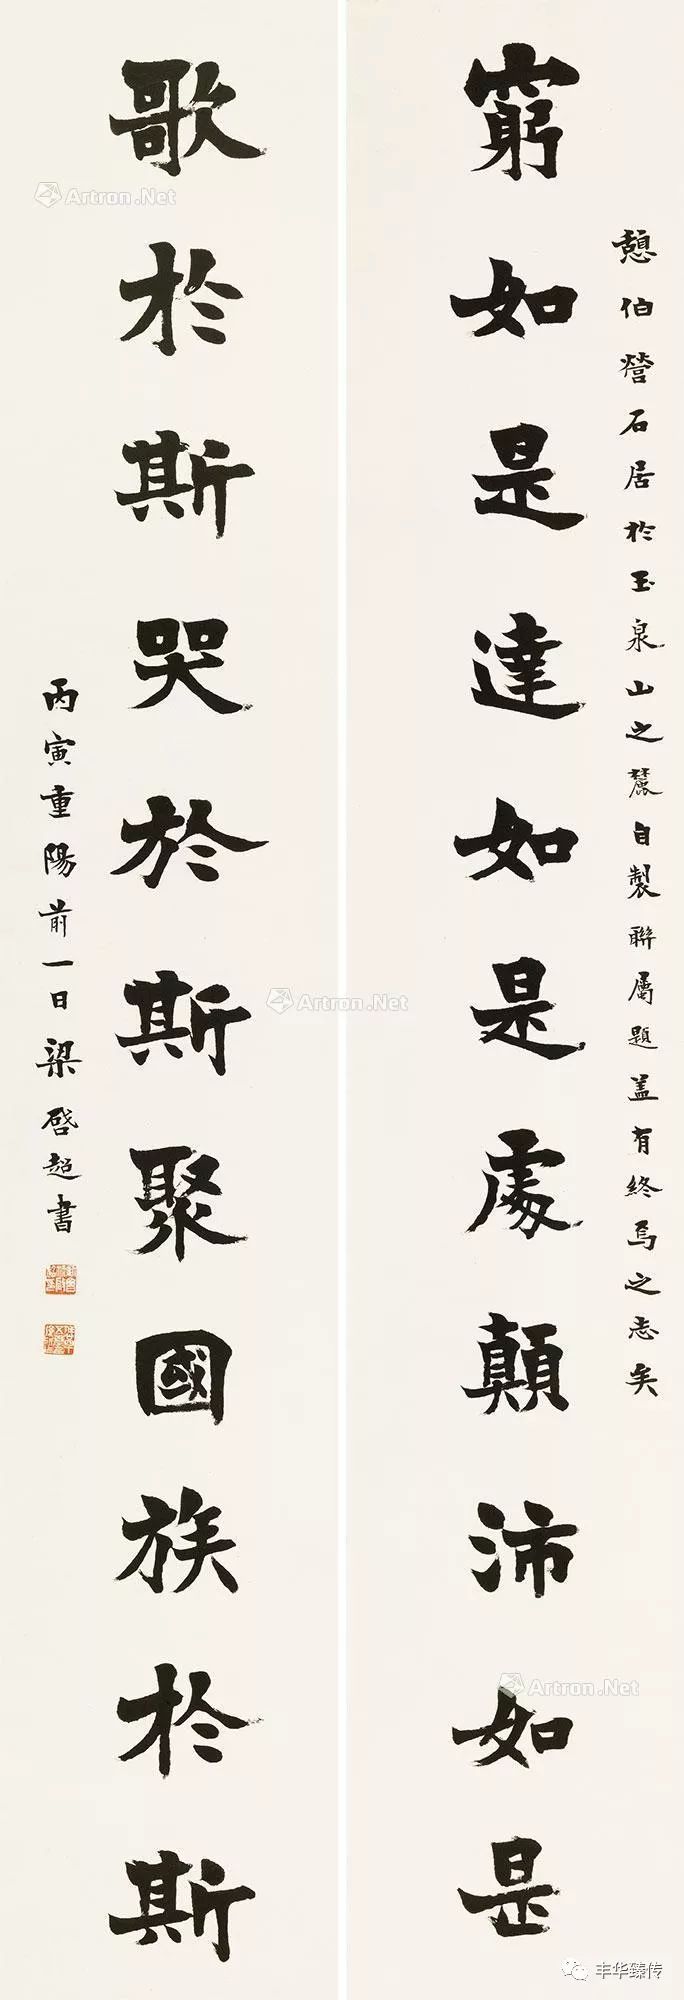 憇伯營石居於玉泉山之麓自製聯屬題蓋有終焉之志矣
窮如是達如是處顛沛如是
歌於斯哭於斯聚國族於斯
丙寅重陽前一日梁啓超書
Artron.Net
Artron.Net
Artron.Net
丰华臻传